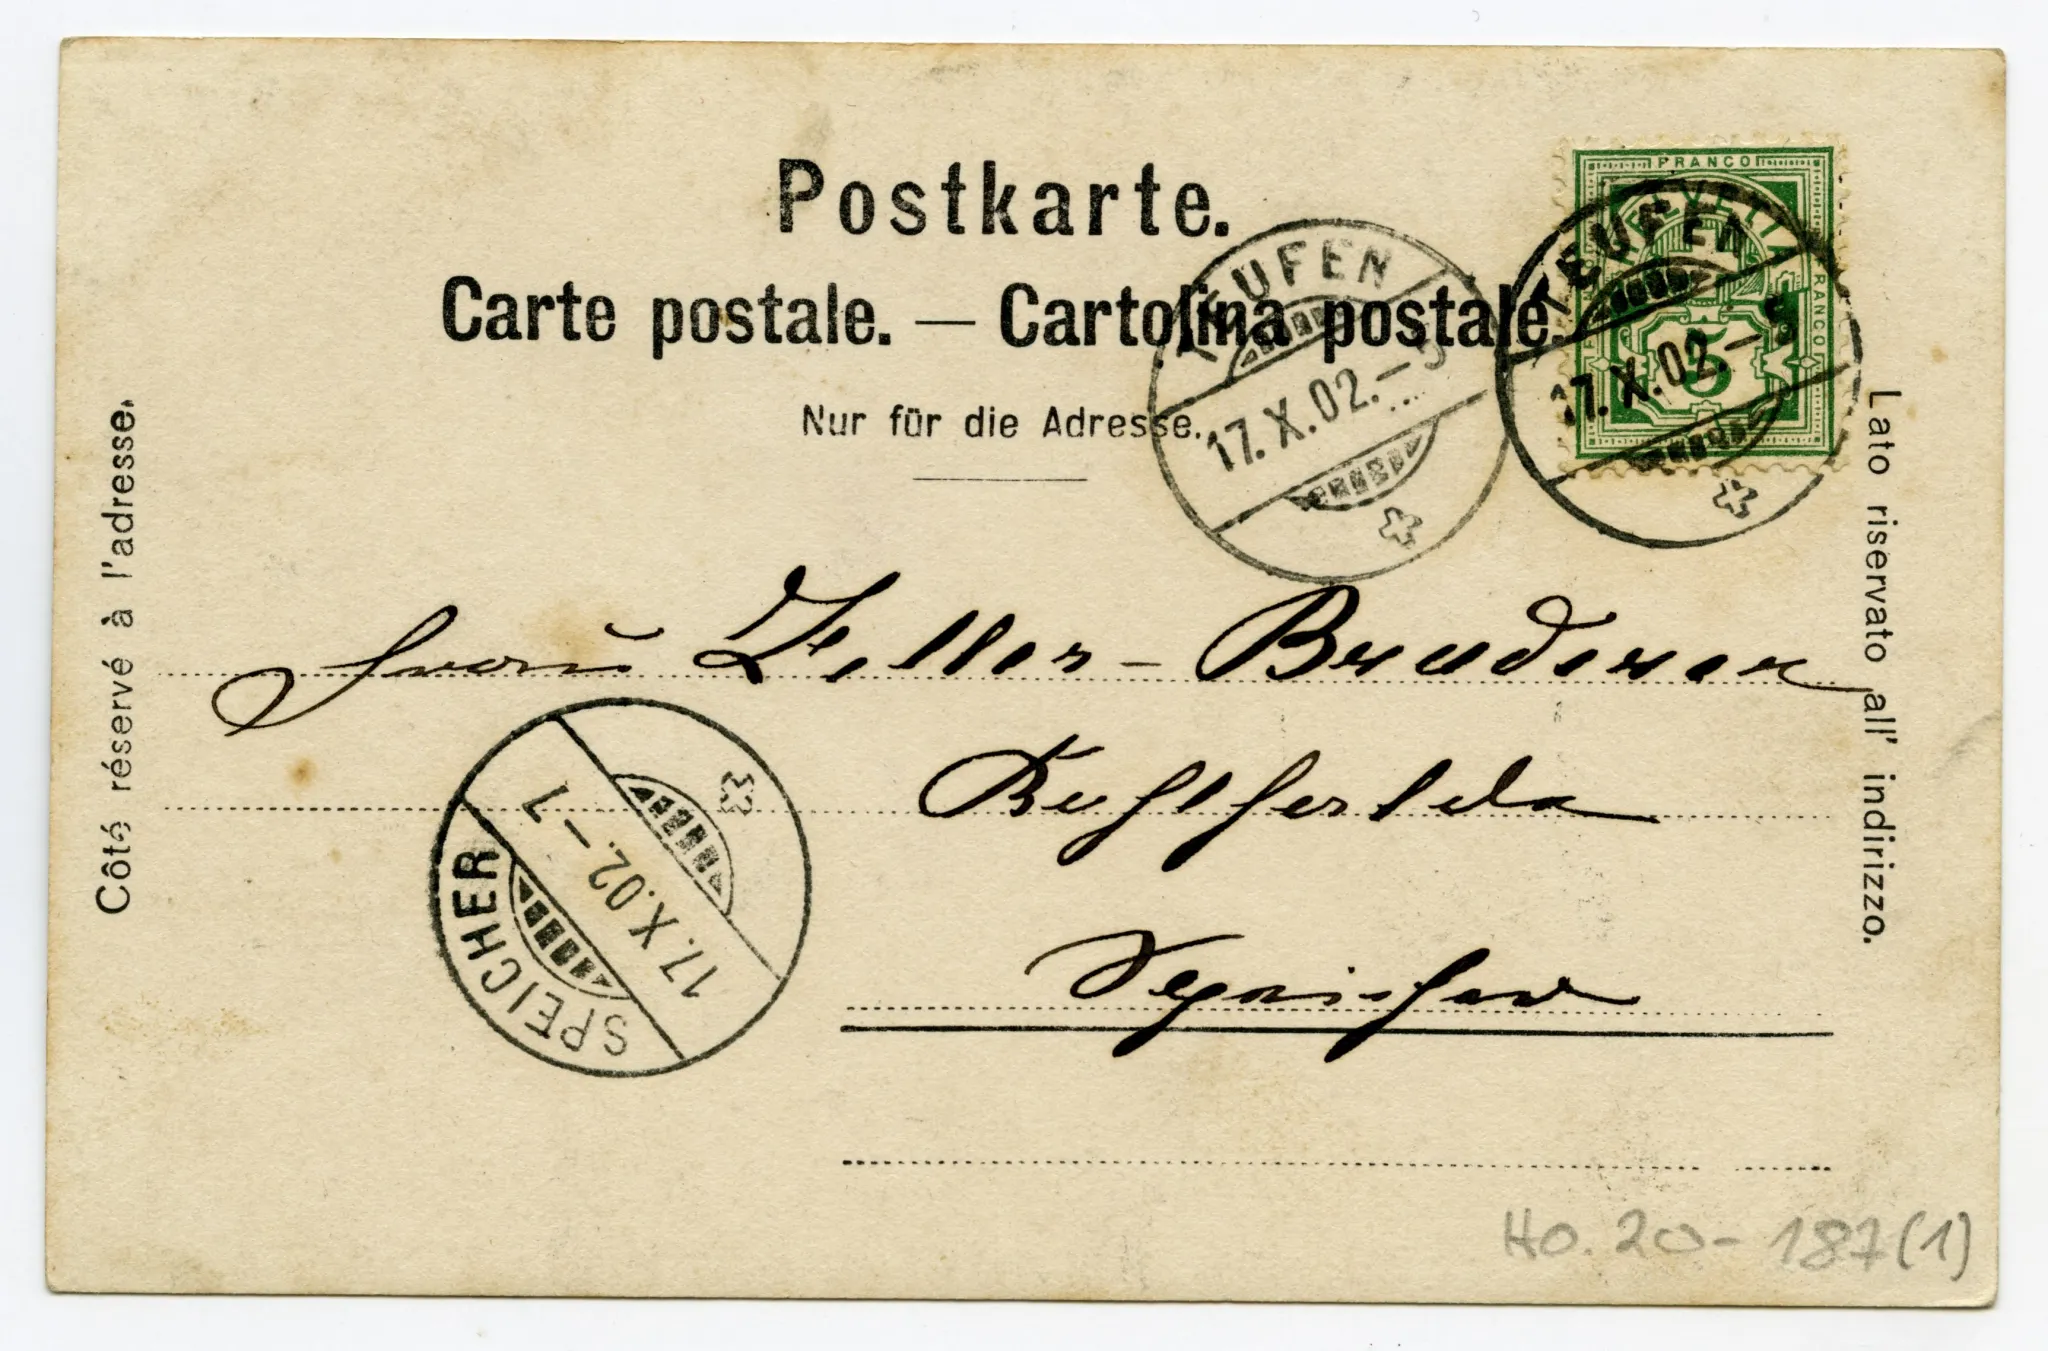 Postkarte.
Carte postale. — Cartolina postale.
Nur für die Adresse.
Côté réservé à l'adresse.
Lato riservato all' indirizzo.
FRANCO
HELVETIA
FRANCO
5
TEUFEN
17.X.02.–5
TEUFEN
17.X.02.–5
Frau Zeller-Bruderer
SPEICHER
17.X.02.–1
Ho. 20-187(1)